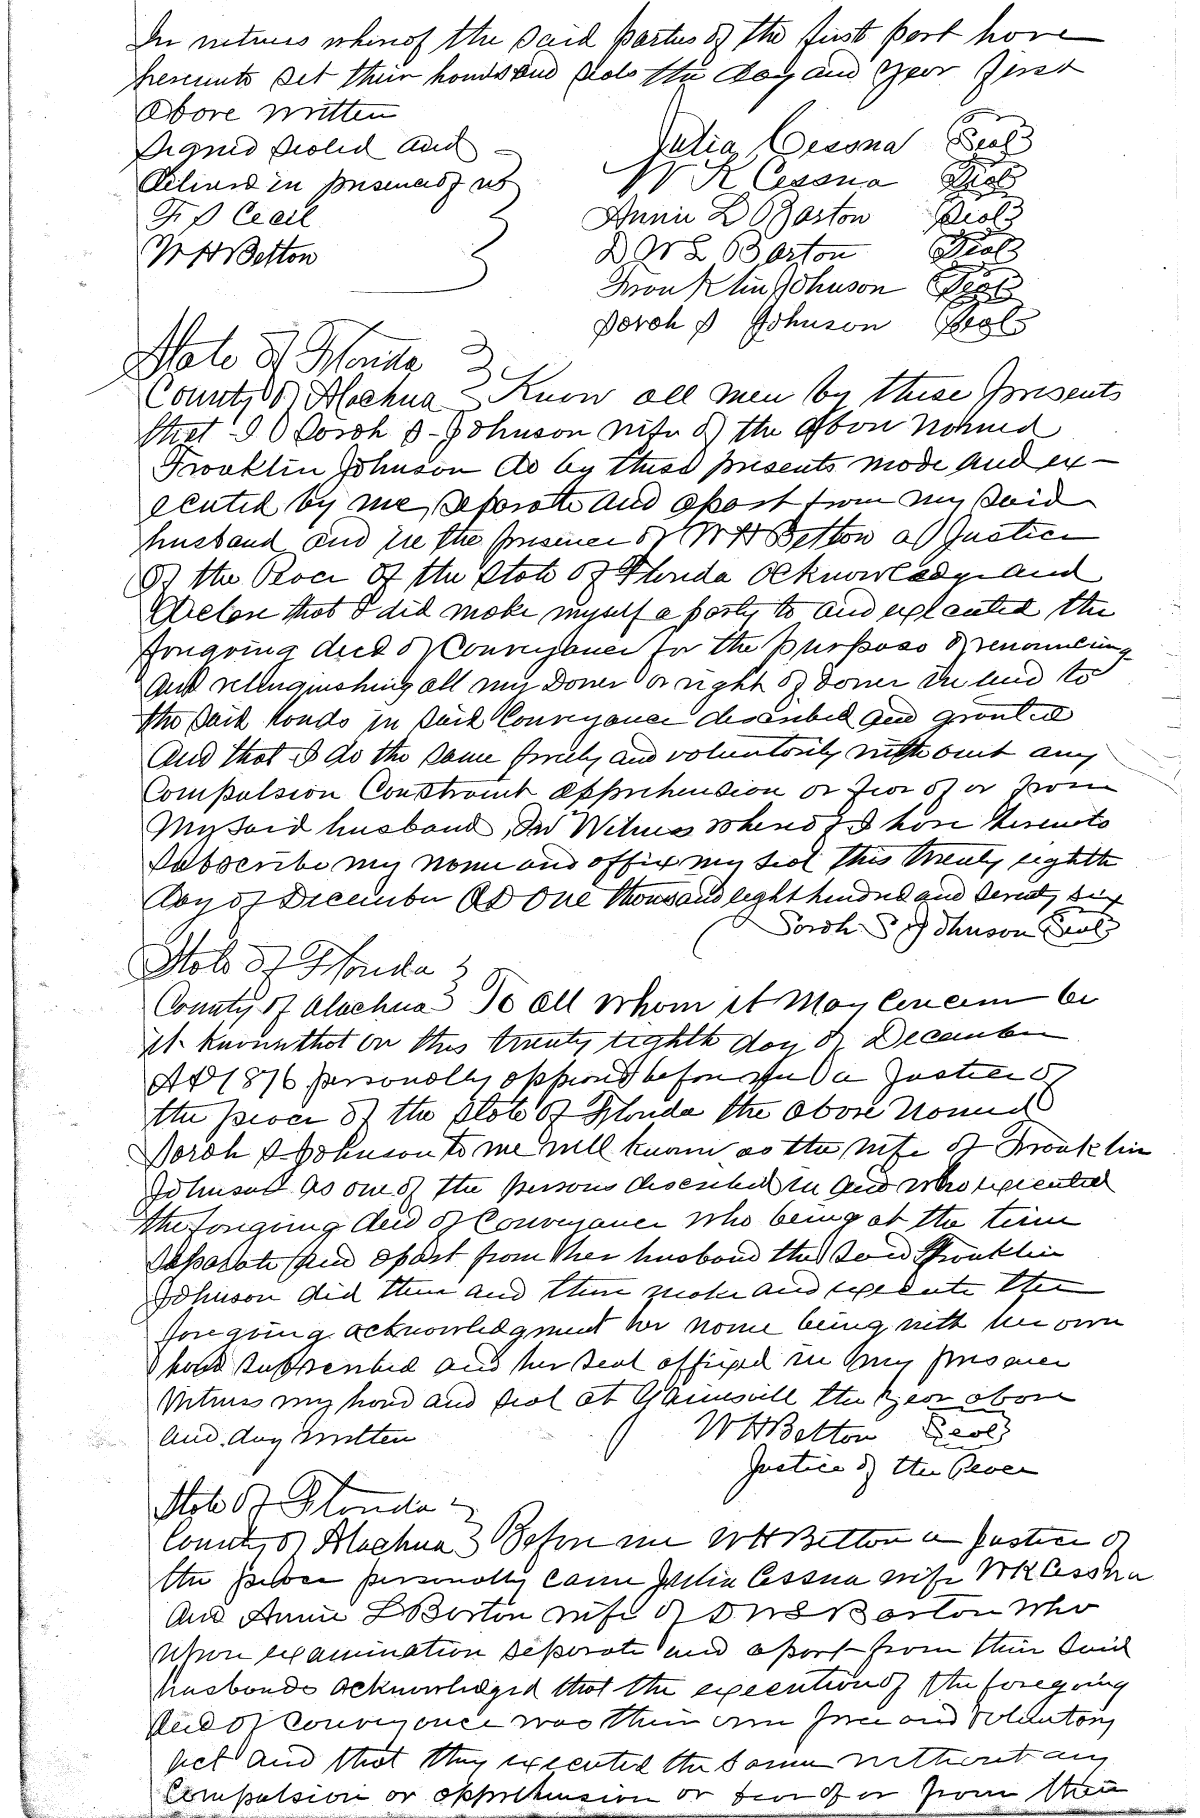 In witness whereof the said parties of the first part have
hereunto set their hands and seals the day and year first
above written
Signed sealed and
delivered in presence of us
F S Cecil
W H Belton
Julia Cessna Seal
W K Cessna Seal
Annie L Barton Seal
D W S Barton Seal
Franklin Johnson Seal
Sarah S Johnson Seal
State of Florida
County of Alachua Know all men by these presents
that I Sarah S Johnson wife of the above named
Franklin Johnson do by these presents made and ex-
ecuted by me, separate and apart from my said
husband and in the presence of W H Belton a Justice
of the Peace of the State of Florida acknowledge and
declare that I did make myself a party to and executed the
foregoing deed of Conveyance for the purpose of renouncing
and relinquishing all my Dower or right of Dower in and to
the said lands in said Conveyance described and granted
and that I do the same freely and voluntarily without any
Compulsion Constraint apprehension or fear of or from
My said husband, In Witness whereof I have hereunto
subscribe my name and affix my seal this twenty eighth
day of December AD One thousand eight hundred and seventy six
Sarah S Johnson Seal
State of Florida
County of Alachua To all whom it May Concern be
it known that on this twenty eighth day of December
AD 1876 personally appeared before me a Justice of
the peace of the State of Florida the above named
Sarah S Johnson to me well known as the wife of Franklin
Johnson as one of the persons described in and who executed
the foregoing deed of Conveyance who being at the time
separate and apart from her husband the said Franklin
Johnson did then and there make and execute the
foregoing acknowledgment her name being with her own
hand subscribed and her seal affixed in my presence
Witness my hand and seal at Gainesville the year above
and day written
W H Belton Seal
Justice of the Peace
State of Florida
County of Alachua Before me W H Belton a Justice of
the peace personally came Julia Cessna wife W K Cessna
and Annie L Barton wife of D W S Barton who
upon examination separate and apart from their said
husbands acknowledged that the execution of the foregoing
deed of conveyance was their own free and voluntary
act and that they executed the same without any
compulsion or apprehension or fear of or from their